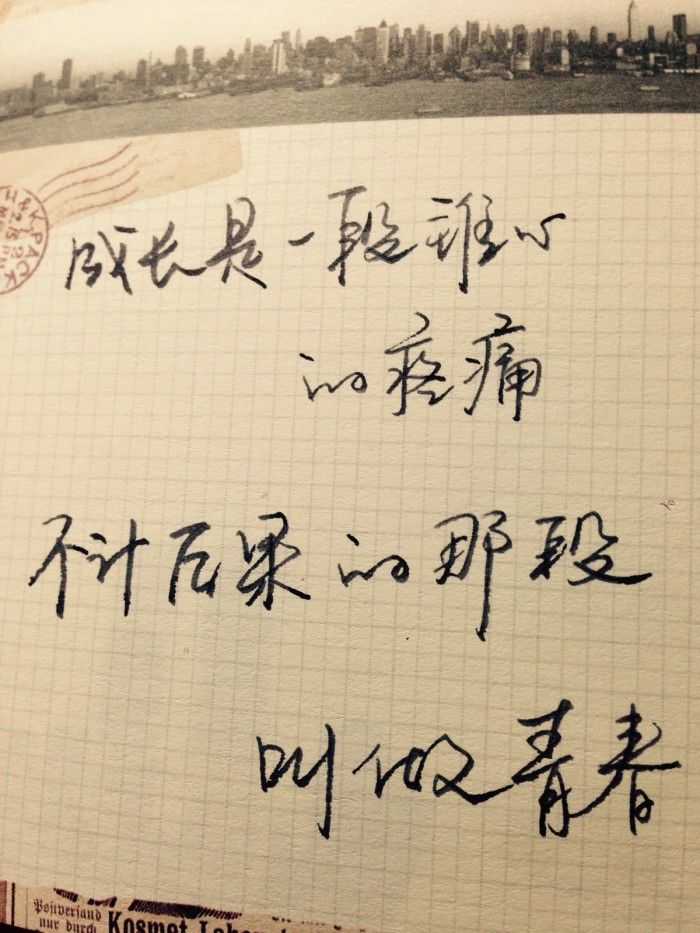 成长是一段锥心
的疼痛
不计后果的那段
叫做青春
Poſtverſand
nur durch Kosmet Labo